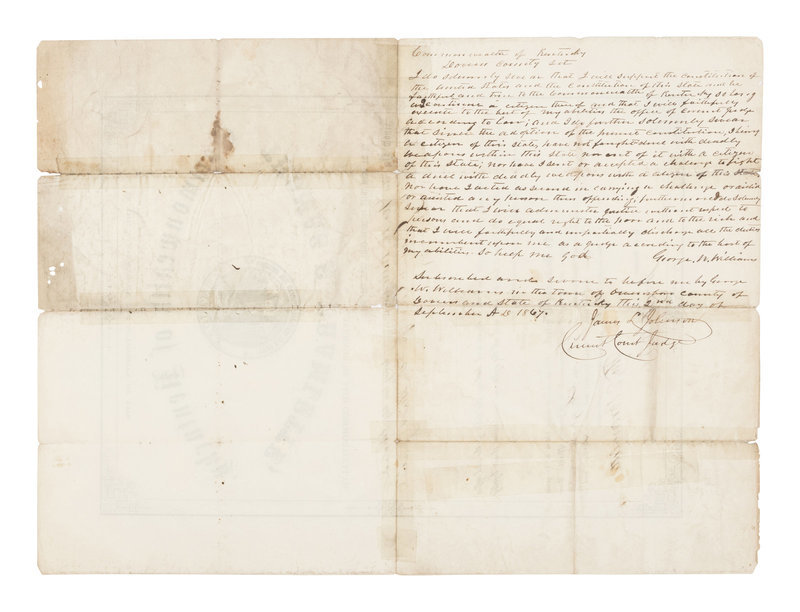 Commonwealth of Kentucky
Daviess County Sct
I do solemnly swear that I will support the constitution of
the United States and the Constitution of this State and be
faithful and true to the Commonwealth of Kentucky so long
as I continue a citizen thereof and that I will faithfully
execute to the best of my abilities the office of Circuit Judge
according to law; and I do further solemnly swear
that since the adoption of the present constitution, I being
a citizen of this state, have not fought duel with deadly
weapons within this State nor out of it with a citizen
of this State, nor have I sent or accepted a challenge to fight
a duel with deadly weapons with a citizen of this State
Nor have I acted as second in carrying a challenge or aided
or assisted any person thus offending, furthermore I do solemnly
swear that I will administer justice without respect to
persons and do equal right to the poor and to the rich and
that I will faithfully and impartially discharge all the duties
incumbent upon me as a judge according to the best of
my abilities So help me God.
George W. Williams
Subscribed and sworne to before me by George
W. Williams in the town of Owensboro County of
Daviess and State of Kentucky this 2nd day of
September A D 1867.
James L Johnson
Circuit Court Judge